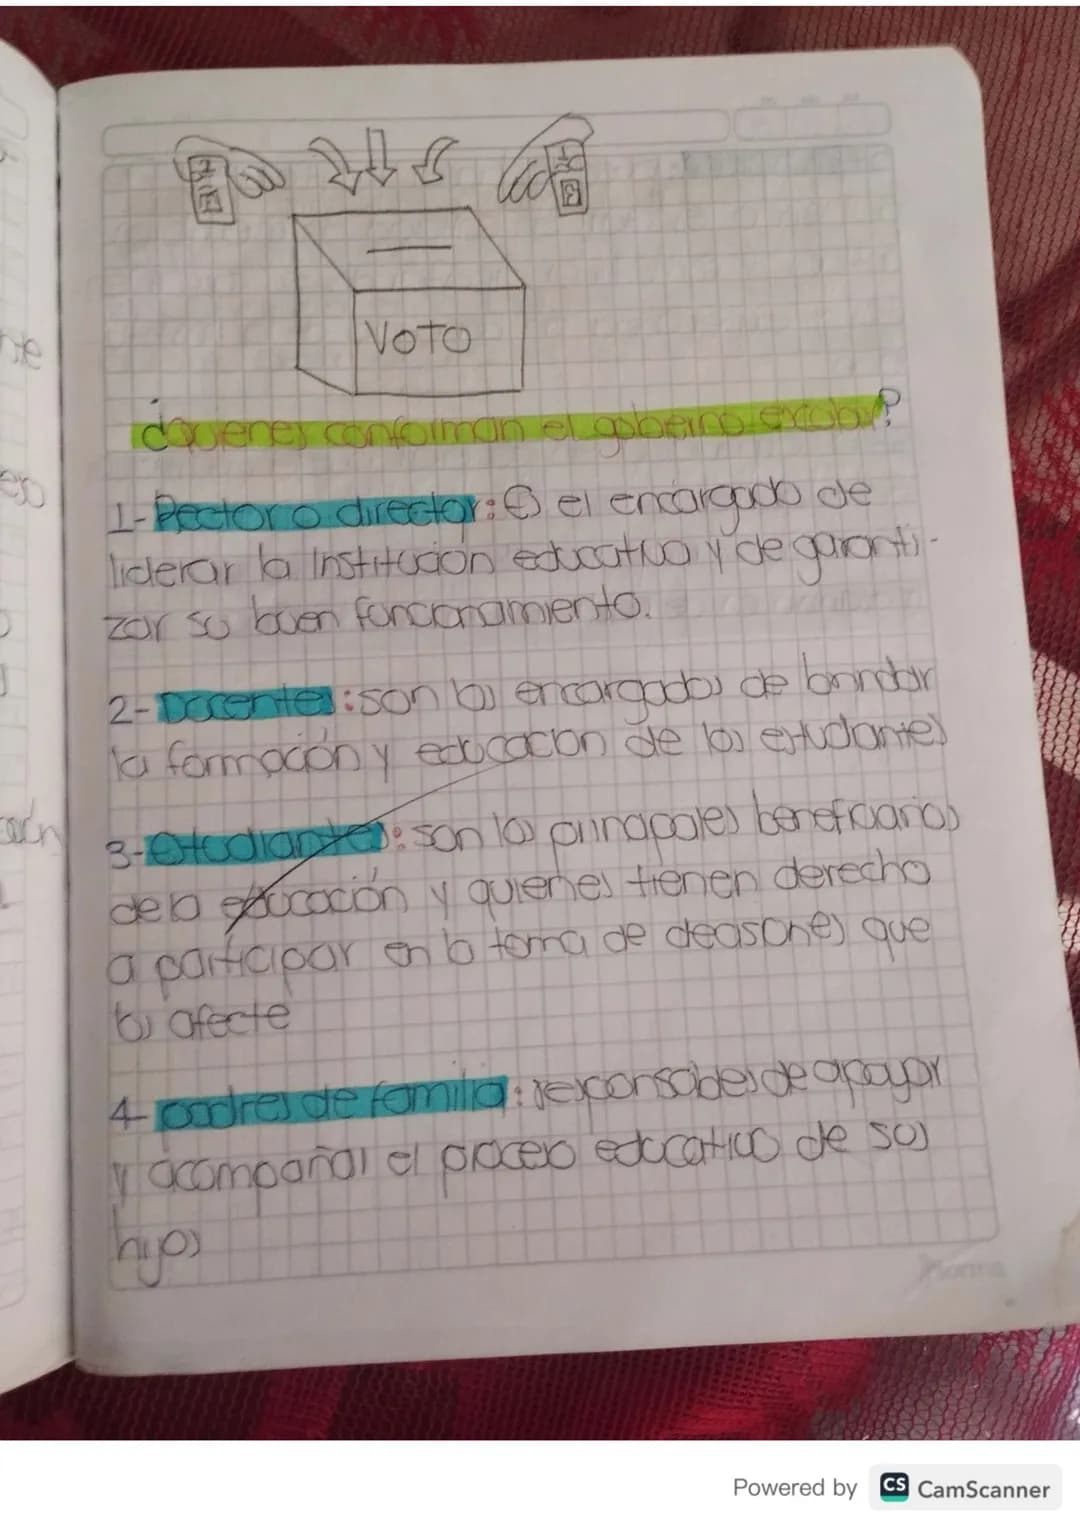 VOTO
¿Quienes conforman el gobierno escolar?
1- Rector o director: Es el encargado de
liderar la Institucion educativa y de garanti-
zar su buen funcionamiento.
2- Docentes: son los encargados de brindar
la formación y educacion de los estudiantes
3- estudiantes: son los principales beneficiarios
de la educación y quienes tienen derecho
a participar en la toma de decisones que
los afecte
4- padres de familia: responsables de apoyar
y acompañar el proceso educativo de sus
hijos
Norma
Powered by CS CamScanner